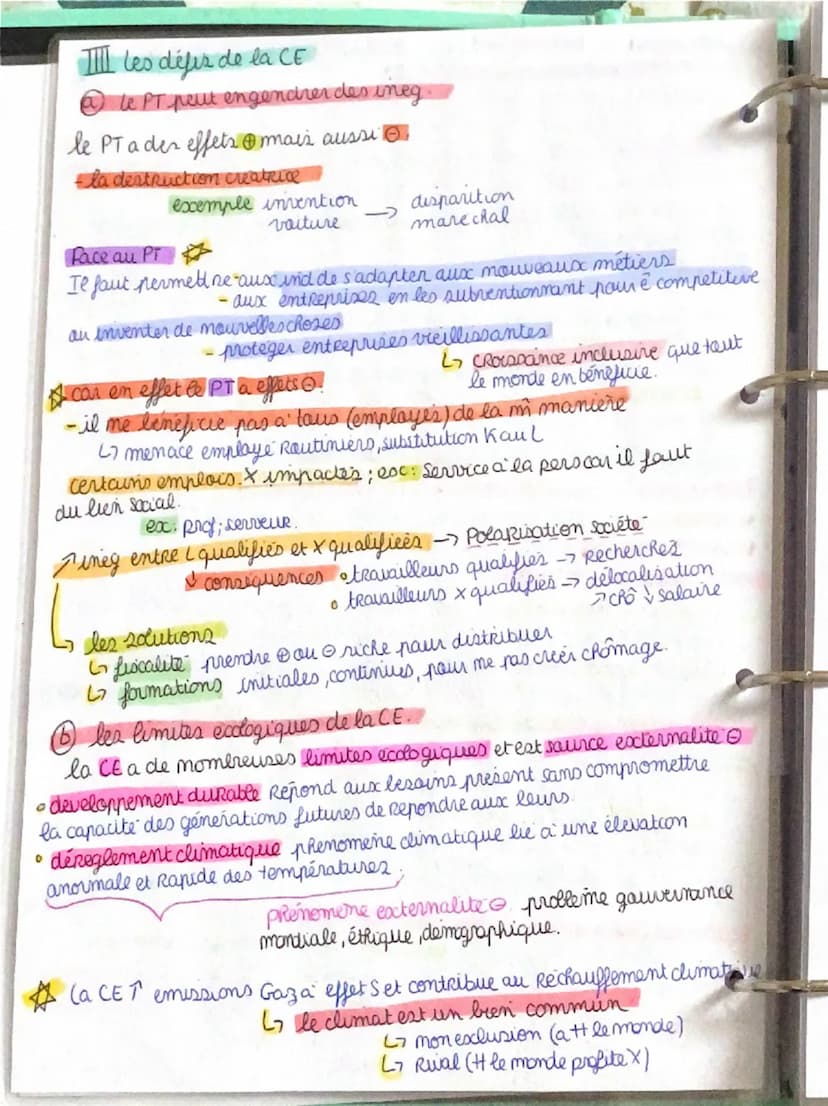 III les défis de la CE
a) le PT peut engendrer des inég.
le PT a des effets ⊕ mais aussi ⊖.
- la destruction creatrice
exemple invention voiture → disparition marechal
Face au PT ☆
Il faut permettre - aux ind de s'adapter aux nouveaux métiers
- aux entreprises en les subventionnant pour ê compétitive
ou inventer de nouvelles choses
- protéger entreprises vieillissantes
↳ croissance inclusive que tout
le monde en bénéficie.
☆ car en effet le PT a effets ⊖.
- il ne bénéficie pas à tous (employés) de la m̂ manière
↳ menace employé Routiniers, substitution K au L
certains emplois X impactés ; ex : Service à la pers car il faut
du lien social.
ex. prof ; serveur.
↗ inég entre L qualifiés et X qualifiées → Polarisation société
↓ conséquences • travailleurs qualifiés → Recherchez
• travailleurs X qualifiés → délocalisation
↗ chô ↓ salaire
↳ les solutions
↳ fiscalité prendre ⊕ ou ⊖ riche pour distribuer
↳ formations initiales, continues, pour ne pas créer chômage.
b) les limites écologiques de la CE.
la CE a de nombreuses limites écologiques et est source externalité ⊖
• développement durable Répond aux besoins présent sans compromettre
la capacité des générations futures de Repondre aux leurs.
• déreglement climatique phénomène climatique lié à une élévation
anormale et Rapide des températures.
phénomène externalité ⊖ problème gouvernance
mondiale, éthique, démographique.
☆ La CE ↑ emissions Gaz à effet S et contribue au Réchauffement climatique
↳ le climat est un bien commun
↳ non exclusion (a tt le monde)
↳ Rival (tt le monde profite X)